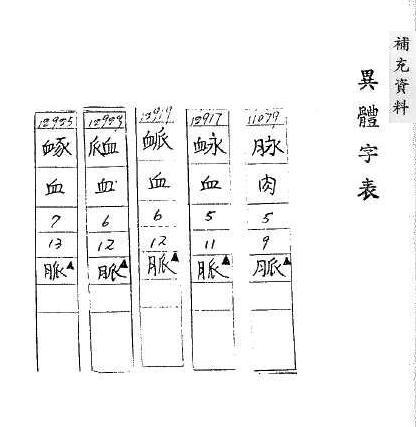 補充資料
異體字表
11079
脉
肉
5
9
脈▲
12917
衇
血
5
11
脈▲
12919
衇
血
6
12
脈▲
12923
血
6
12
脈▲
12955
血
7
13
脈▲